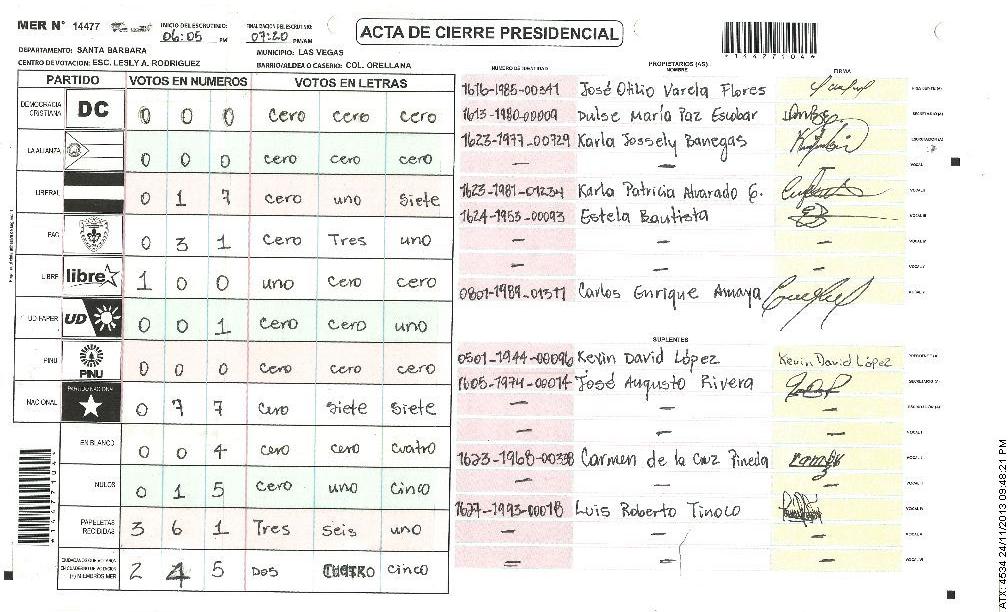 MER N° 14477
INICIO DEL ESCRUTINIO:
06:05 PM
FINALIZACION DEL ESCRUTINIO:
07:20 PM/AM
ACTA DE CIERRE PRESIDENCIAL
DEPARTAMENTO: SANTA BARBARA
MUNICIPIO: LAS VEGAS
CENTRO DE VOTACION: ESC. LESLY A. RODRIGUEZ
BARRIO/ALDEA O CASERIO: COL. ORELLANA
*144771044*
PARTIDO VOTOS EN NUMEROS VOTOS EN LETRAS
DEMOCRACIA CRISTIANA DC 0 0 0 cero cero cero
LA ALIANZA 0 0 0 cero cero cero
LIBERAL 0 1 7 cero uno siete
PAC 0 3 1 cero Tres uno
LIBRE libre 1 0 0 uno cero cero
UD FAPER UD 0 0 1 cero cero uno
PINU PINU 0 0 0 cero cero cero
NACIONAL PARTIDO NACIONAL 0 7 7 cero siete siete
EN BLANCO 0 0 4 cero cero cuatro
NULOS 0 1 5 cero uno cinco
PAPELETAS RECIBIDAS 3 6 1 Tres seis uno
2 4 5 Dos cuatro cinco
NUMERO DE IDENTIDAD PROPIETARIOS (AS) NOMBRE FIRMA
1616-1985-00341 José Otilio Varela Flores
1613-1980-00009 Dulse María Paz Escobar
1623-1977-00729 Karla Jossely Banegas
— —
1623-1981-01234 Karla Patricia Alvarado G.
1624-1953-00093 Estela Bautista
— — —
— — —
0801-1989-01317 Carlos Enrique Amaya
SUPLENTES
0501-1944-00096 Kevin David López Kevin David López
1605-1974-00014 José Augusto Rivera
— — —
— — —
1623-1968-00338 Carmen de la Cruz Pineda
— — —
1627-1993-00018 Luis Roberto Tinoco
— — —
— — —
*144771044*
ATX: 4534 24/11/2013 09:48:21 PM